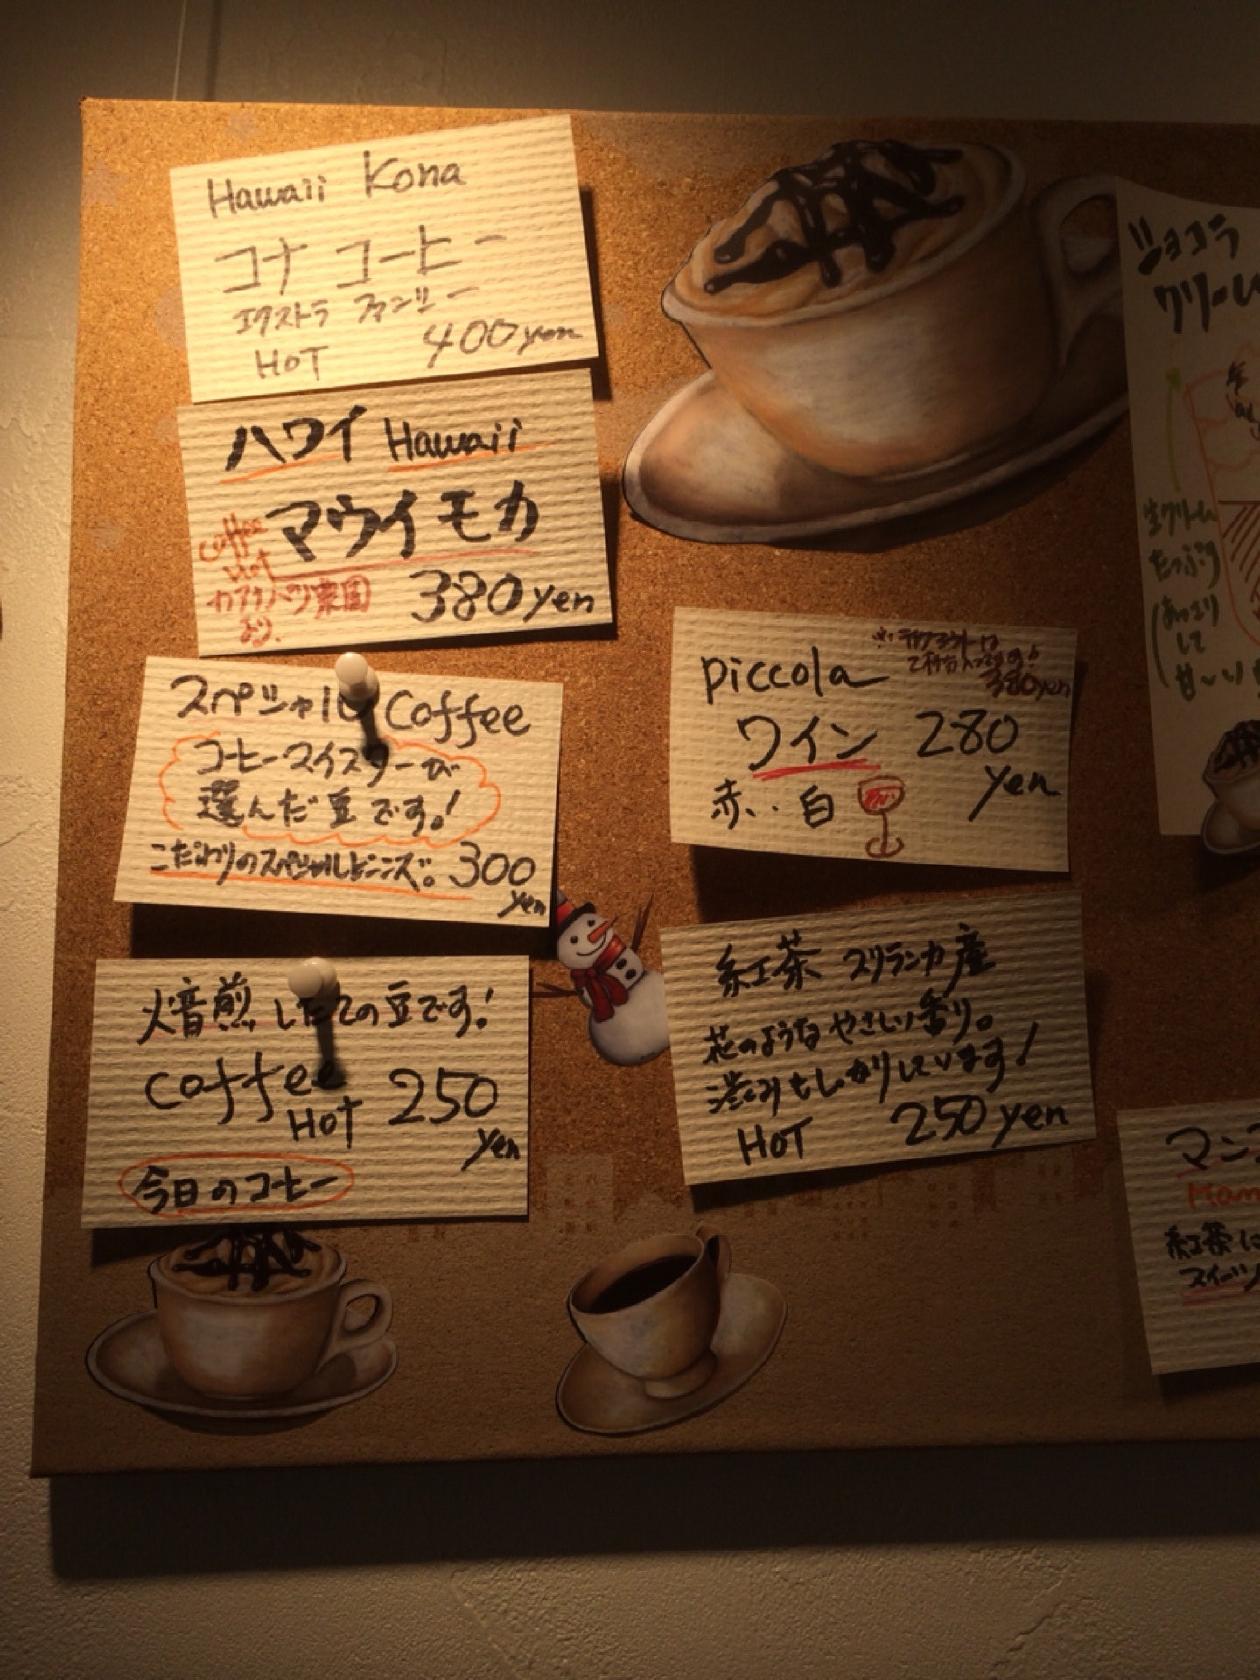 Hawaii Kona
コナ コーヒー
エクストラ ファンシー
HOT 400yen
ハワイ Hawaii
マウイ モカ
Coffee
Hot
カアナパリ農園
より.
380yen
スペシャル Coffee
コーヒーマイスターが
選んだ豆です!
こだわりのスペシャルビーンズ。300
yen
焙煎したての豆です!
coffee
HOT 250
yen
今日のコーヒー
piccola
※テイクアウトは
380yen
ワイン 280
yen
赤・・白
紅茶 スリランカ産
花のようなやさしい香り。
渋みもしっかりしています!
HOT 250yen
ショコラ
クリーム
生クリーム
たっぷり
(あっさり
して
甘〜い
マン
紅茶に
スイーツ